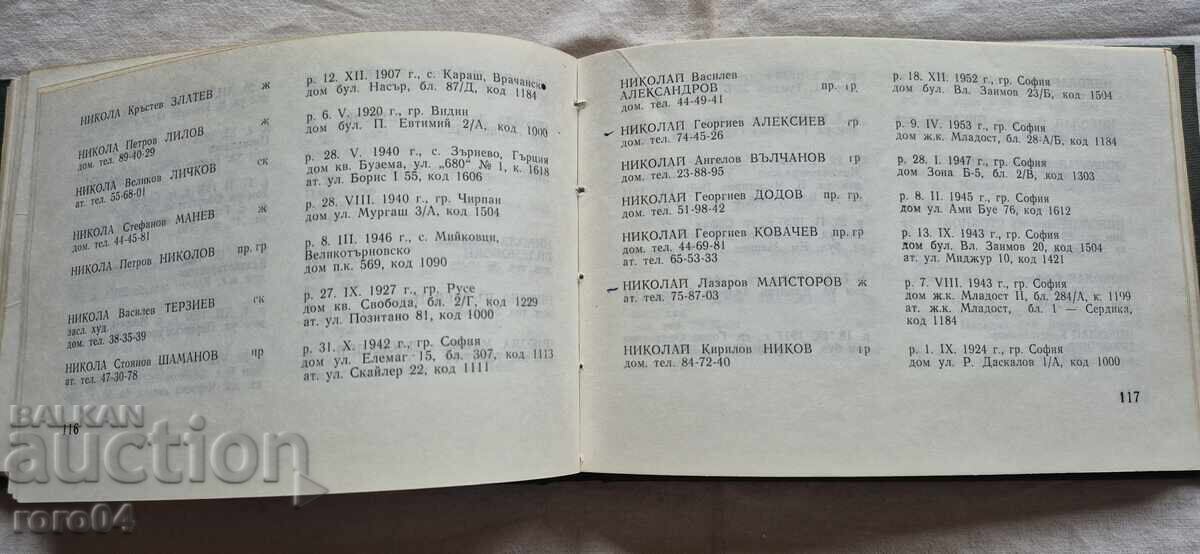 НИКОЛА Кръстев ЗЛАТЕВ ж
р. 12. XII. 1907 г., с. Караш, Врачанско
дом бул. Насър, бл. 87/Д, код 1184
НИКОЛА Петров ЛИЛОВ ж
дом. тел. 89-40-29
р. 6. V. 1920 г., гр. Видин
дом бул. П. Евтимий 2/А, код 1000
НИКОЛА Великов ЛИЧКОВ ск
ат. тел. 55-68-01
р. 28. V. 1940 г., с. Зърнево, Гърция
дом кв. Бузема, ул. „680" № 1, к. 1618
ат. ул. Борис I 55, код 1606
НИКОЛА Стефанов МАНЕВ ж
дом. тел. 44-45-81
р. 28. VIII. 1940 г., гр. Чирпан
дом ул. Мургаш 3/А, код 1504
НИКОЛА Петров НИКОЛОВ пр. гр
р. 8. III. 1946 г., с. Мийковци,
Великотърновско
дом п.к. 569, код 1090
НИКОЛА Василев ТЕРЗИЕВ ск
засл. худ.
дом. тел. 38-35-39
р. 27. IX. 1927 г., гр. Русе
дом кв. Свобода, бл. 2/Г, код 1229
ат. ул. Позитано 81, код 1000
НИКОЛА Стоянов ШАМАНОВ пр
ат. тел. 47-30-78
р. 31. X. 1942 г., гр. София
дом ул. Елемаг 15, бл. 307, код 1113
ат. ул. Скайлер 22, код 1111
116
НИКОЛАЙ Василев
АЛЕКСАНДРОВ пр. гр
дом. тел. 44-49-41
р. 18. XII. 1952 г., гр. София
дом бул. Вл. Заимов 23/Б, код 1504
НИКОЛАЙ Георгиев АЛЕКСИЕВ гр
дом. тел. 74-45-26
р. 9. IV. 1953 г., гр. София
дом ж.к. Младост, бл. 28-А/Б, код 1184
НИКОЛАЙ Ангелов ВЪЛЧАНОВ гр
дом. тел. 23-88-95
р. 28. I. 1947 г., гр. София
дом Зона Б-5, бл. 2/В, код 1303
НИКОЛАЙ Георгиев ДОДОВ пр. гр
дом. тел. 51-98-42
р. 8. II. 1945 г., гр. София
дом ул. Ами Буе 76, код 1612
НИКОЛАЙ Георгиев КОВАЧЕВ пр. гр
дом. тел. 44-69-81
ат. тел. 65-53-33
р. 13. IX. 1943 г., гр. София
дом бул. Вл. Заимов 20, код 1504
ат. ул. Миджур 10, код 1421
НИКОЛАЙ Лазаров МАЙСТОРОВ ж
ат. тел. 75-87-03
р. 7. VIII. 1943 г., гр. София
дом ж.к. Младост II, бл. 284/А, к. 1199
ат. ж.к. Младост, бл. 1 — Сердика,
код 1184
НИКОЛАЙ Кирилов НИКОВ гр
дом. тел. 84-72-40
р. 1. IX. 1924 г., гр. София
дом ул. Р. Даскалов 1/А, код 1000
117
BALKAN
auction
roro04